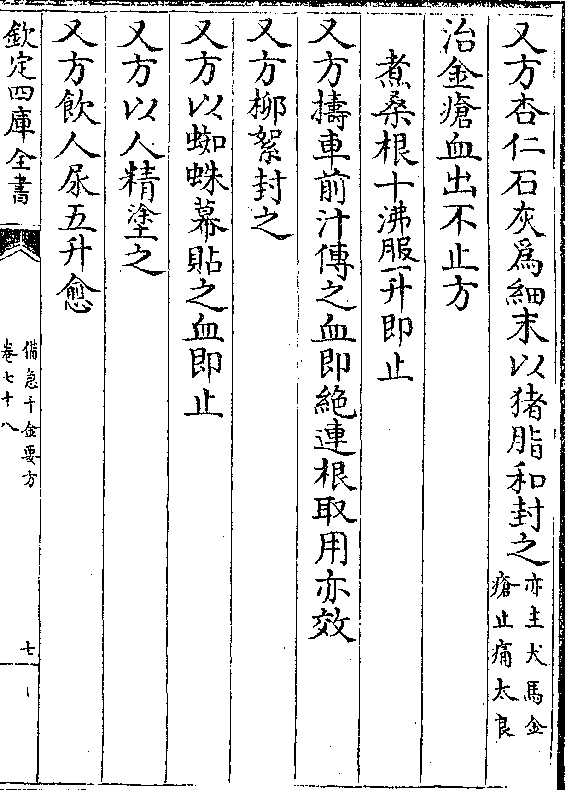 又方杏仁石灰爲細末以猪脂和封之亦主犬馬金瘡止痛太良
治金瘡血出不止方
煮桑根十沸服一升即止
又方擣車前汁傅之血即絶連根取用亦效
又方柳絮封之
又方以蜘蛛幕貼之血即止
又方以人精塗之
又方飲人尿五升愈
欽定四庫全書
備急千金要方
卷七十八
七